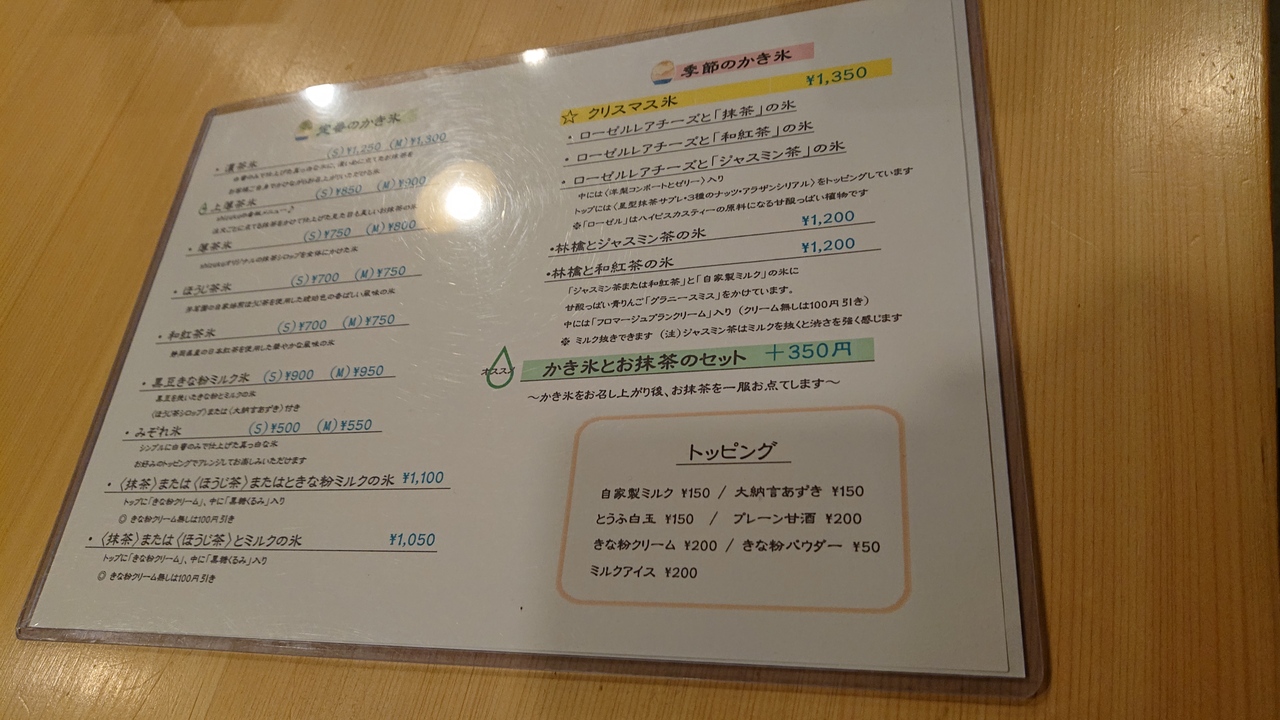 定番のかき氷
・濃茶氷 (S)¥1,250 (M)¥1,300
お客様ご自身でかけながらお召し上がりいただける氷
上薄茶氷 (S)¥850 (M)¥900
・薄茶氷 (S)¥750 (M)¥800
オリジナルの抹茶シロップを全体にかけた氷
・ほうじ茶氷 (S)¥700 (M)¥750
自家焙煎ほうじ茶を使用した琥珀色の香ばしい風味の氷
・和紅茶氷 (S)¥700 (M)¥750
静岡県産の日本紅茶を使用した華やかな風味の氷
・黒豆きな粉ミルク氷 (S)¥900 (M)¥950
黒豆を挽いたきな粉とミルクの氷
〈ほうじ茶シロップ〉または〈大納言あずき〉付き
・みぞれ氷 (S)¥500 (M)¥550
シンプルに白蜜のみで仕上げた真っ白な氷
お好みのトッピングでアレンジしてお楽しみいただけます
・〈抹茶〉または〈ほうじ茶〉またはときな粉ミルクの氷 ¥1,100
トップに「きな粉クリーム」、中に「黒糖くるみ」入り
◎ きな粉クリーム無しは100円引き
・〈抹茶〉または〈ほうじ茶〉とミルクの氷 ¥1,050
トップに「きな粉クリーム」、中に「黒糖くるみ」入り
◎ きな粉クリーム無しは100円引き
季節のかき氷
☆ クリスマス氷 ¥1,350
・ローゼルレアチーズと「抹茶」の氷
・ローゼルレアチーズと「和紅茶」の氷
・ローゼルレアチーズと「ジャスミン茶」の氷
中には〈洋梨コンポートとゼリー〉入り
トップには〈星型抹茶サブレ・3種のナッツ・アラザンシリアル〉をトッピングしています
※「ローゼル」はハイビスカスティーの原料になる甘酸っぱい植物です
・林檎とジャスミン茶の氷 ¥1,200
・林檎と和紅茶の氷 ¥1,200
「ジャスミン茶または和紅茶」と「自家製ミルク」の氷に
甘酸っぱい青りんご「グラニースミス」をかけています。
中には「フロマージュブランクリーム」入り (クリーム無しは100円引き)
※ ミルク抜きできます (注)ジャスミン茶はミルクを抜くと渋さを強く感じます
オススメ かき氷とお抹茶のセット +350円
～かき氷をお召し上がり後、お抹茶を一服お点てします～
トッピング
自家製ミルク ¥150 / 大納言あずき ¥150
とうふ白玉 ¥150 / プレーン甘酒 ¥200
きな粉クリーム ¥200 / きな粉パウダー ¥50
ミルクアイス ¥200